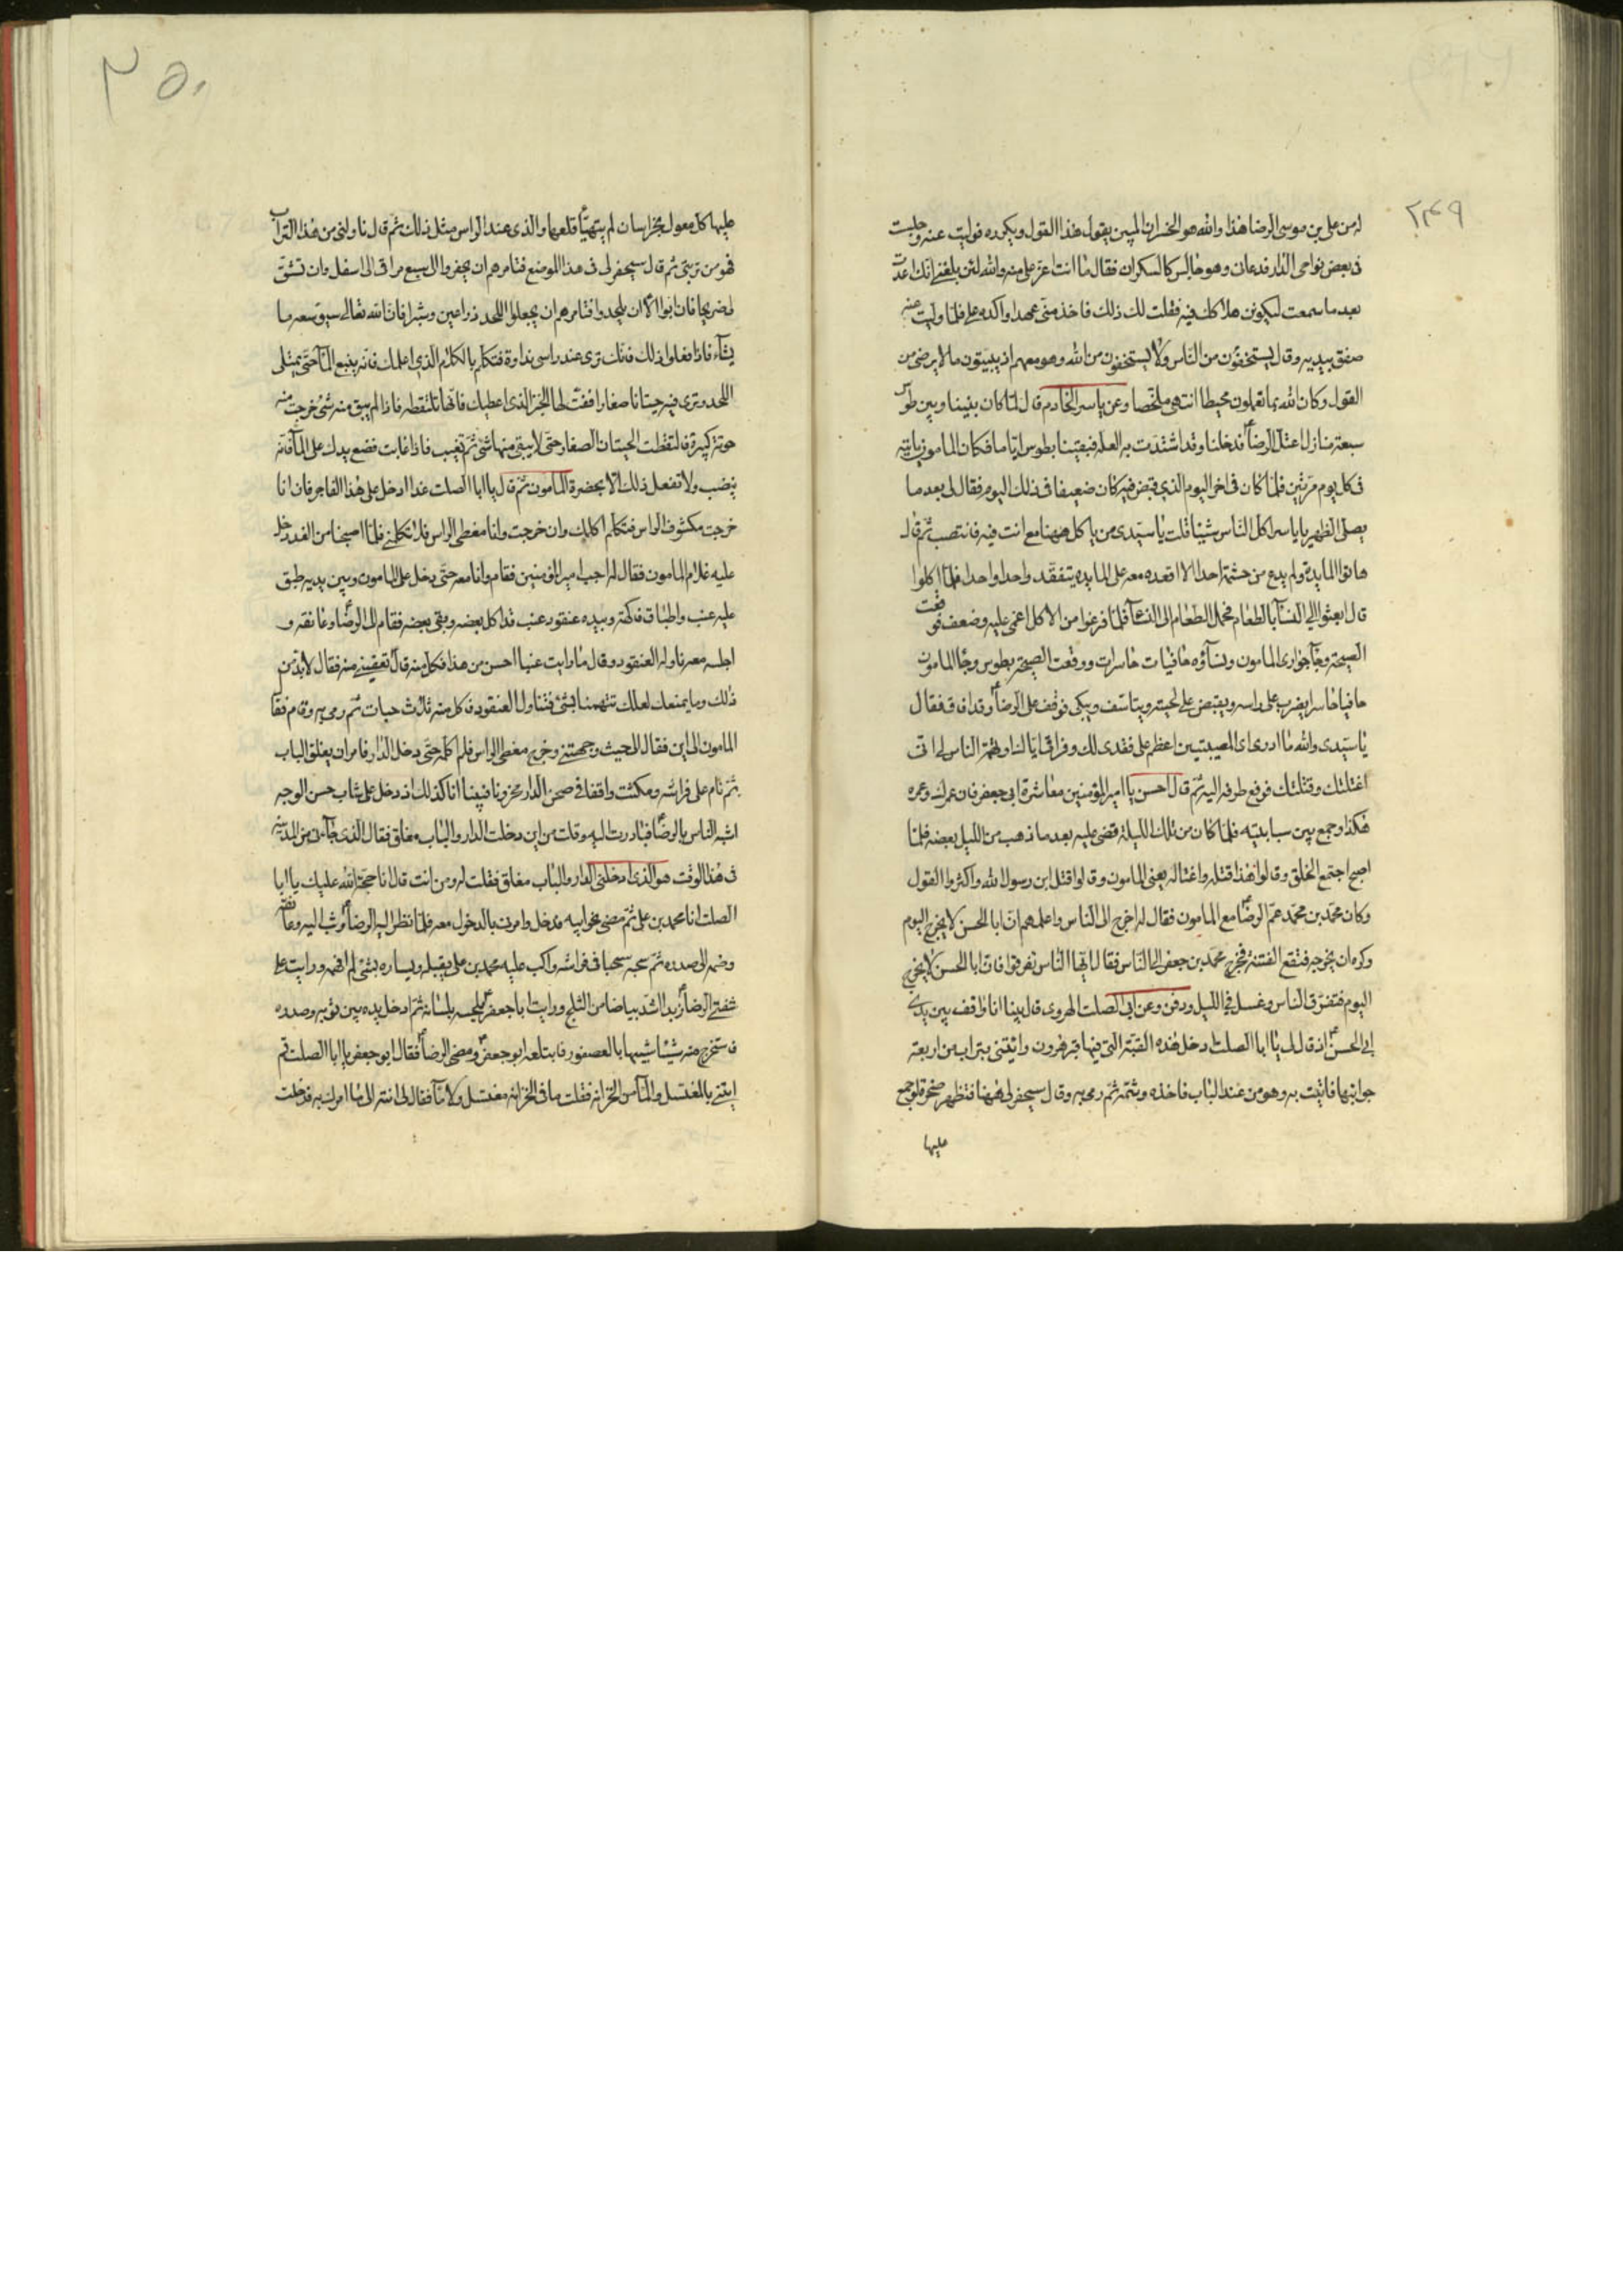 ٢٤٩
له من علي بن موسى الرضا هذا والله هو الخسران المبين يقول هذا القول ويكرره فوليت عنه وجلست
فى بعض نواحى الدار فدعانى وهو جالس كالسكران فقال ما انت اعز على منه والله لئن بلغنى انك اعدت
بعد ما سمعت ليكونن هلاكك فيه فقلت لك ذلك فاخذ منى عهدا واكده على فلما وليت عنه
صفق بيديه وقال يستخفون من الناس ولا يستخفون من الله وهو معهم اذ يبيتون ما لا يرضى من
القول وكان الله بما تعملون محيطا انتهى ملخصا وعن ياسر الخادم قال لما كان بيننا وبين طوس
سبعة منازل اعتل الرضا فدخلنا وقد اشتدت به العلة فبقينا بطوس اياما فكان المامون ياتيه
فى كل يوم مرتين فلما كان فى اخر اليوم الذي قبض فيه كان ضعيفا فى ذلك اليوم فقال لى بعد ما
يصلى الظهر يا ياسر اكل الناس شيئا قلت يا سيدى من ياكل ههنا مع انت فيه فانتصب ثم قال
هاتوا المايدة ولم يدع من حشمه احدا الا اقعده معه على المايدة يتفقد واحدا واحدا فلما اكلوا
قال ابعثوا الى النسآء بالطعام فحمل الطعام الى النسآء فلما فرغوا من الاكل اغمى عليه وضعف فوقعت
الصيحة وجآء جوارى المامون ونسآؤه حافيات حاسرات ووقعت الصيحة بطوس وجآء المامون
حافيا حاسرا يضرب على راسه ويقبض على لحيته ويتاسف ويبكى فوقف على الرضا وقد افاق فقال
يا سيدى والله ما ادرى اى المصيبتين اعظم على فقدى لك وفراقى اياك او تهمة الناس لى انى
اغتلتك وقتلتك فرفع طرفه اليه ثم قال احسن يا امير المؤمنين معاشرة ابى جعفر فان عمرك وعمره
هكذا وجمع بين سبابتيه فلما كان من تلك الليلة قضى عليه بعد ما ذهب من الليل بعضه فلما
اصبح اجتمع الخلق وقالوا هذا قتله واغتاله يعنى المامون وقالوا قتل ابن رسول الله واكثروا القول
وكان محمد بن محمد عم الرضا مع المامون فقال له اخرج الى الناس واعلمهم ان ابا الحسن لا يخرج اليوم
وكره ان يخرجه فتقع الفتنة فخرج محمد بن جعفر الى الناس فقال ايها الناس تفرقوا فان ابا الحسن لا يخرج
اليوم فتفرق الناس وغسل فى الليل ودفن وعن ابى الصلت الهروى قال بينا انا واقف بين يدى
ابى الحسن اذ قال لى يا ابا الصلت ادخل هذه القبة التى فيها قبر هرون وائتنى بتراب من اربعة
جوانبها فاتيت به وهو من عند الباب فاخذه وشمه ثم رمى به وقال سيحفر لى ههنا فتظهر صخرة لو جمع
عليها
٢٥٠
عليها كل معول بخراسان لم يتهيأ قلعها والذى عند الراس مثل ذلك ثم قال ناولنى من هذا التراب
فهو من تربتى ثم قال سيحفر لى فى هذا الموضع فتامرهم ان يحفروا الى سبع مراقى الى اسفل وان تشق
لى ضريحا فان ابوا الا ان يلحدوا فتامرهم ان يجعلوا اللحد ذراعين وشبرا فان الله تعالى سيوسعه ما
يشآء فاذا فعلوا ذلك فانك ترى عند راسى نداوة فتكلم بالكلام الذى اعلمك فانه ينبع المآء حتى يمتلى
اللحد وترى فيه حيتانا صغارا ففت لها الخبز الذى اعطيك فانها تلتقطه فاذا لم يبق منه شئ خرجت منه
حوتة كبيرة فالتقطت الحيتان الصغار حتى لا يبقى منها شئ ثم تغيب فاذا غابت فضع يدك على المآء فانه
ينضب ولا تفعل ذلك الا بحضرة المامون ثم قال يا ابا الصلت غدا ادخل على هذا الفاجر فان انا
خرجت مكشوف الراس فتكلم اكلمك وان خرجت وانا مغطى الراس فلا تكلمنى فلما اصبحنا من الغد دخل
عليه غلام المامون فقال له اجب امير المؤمنين فقام وانا معه حتى دخل على المامون وبين يديه طبق
عليه عنب واطباق فاكهة وبيده عنقود عنب قد اكل بعضه وبقى بعضه فقام الى الرضا وعانقه و
اجلسه معه ناوله العنقود وقال ما رايت عنبا احسن من هذا فكل منه قال تعفينى منه فقال لا بد من
ذلك وما يمنعك لعلك تتهمنا بشئ فتناول العنقود فاكل منه ثلاث حبات ثم رمى به وقام فقال
المامون الى اين فقال الى حيث وجهتنى وخرج مغطى الراس فلم اكلمه حتى دخل الدار فامر ان يغلق الباب
ثم نام على فراشه ومكثت واقفا فى صحن الدار محزونا فبينا انا كذلك اذ دخل على شاب حسن الوجه
اشبه الناس بالرضا فبادرت اليه وقلت من اين دخلت الدار والباب مغلق فقال الذى جآء بى من المدينة
فى هذا الوقت هو الذى ادخلنى الدار والباب مغلق فقلت له ومن انت قال انا حجة الله عليك يا ابا
الصلت انا محمد بن على ثم مضى نحو ابيه فدخل وامرنى بالدخول معه فلما نظر اليه الرضا وثب اليه وعانقه
وضمه الى صدره ثم سحبه سحبا فى فراشه واكب عليه محمد بن على يقبله ويساره بشئ لم افهمه ورايت على
شفتى الرضا زبدا اشد بياضا من الثلج ورايت ابا جعفر يلحسه بلسانه ثم ادخل يده بين ثوبه وصدره
فاستخرج منه شيئا شبيها بالعصفور فابتلعه ابو جعفر ومضى الرضا فقال ابو جعفر يا ابا الصلت قم
ايتنى بالمغتسل والمآء من الخزانة فقلت ما فى الخزانة مغتسل ولا مآء فقال لى انته الى ما امرك به فدخلت